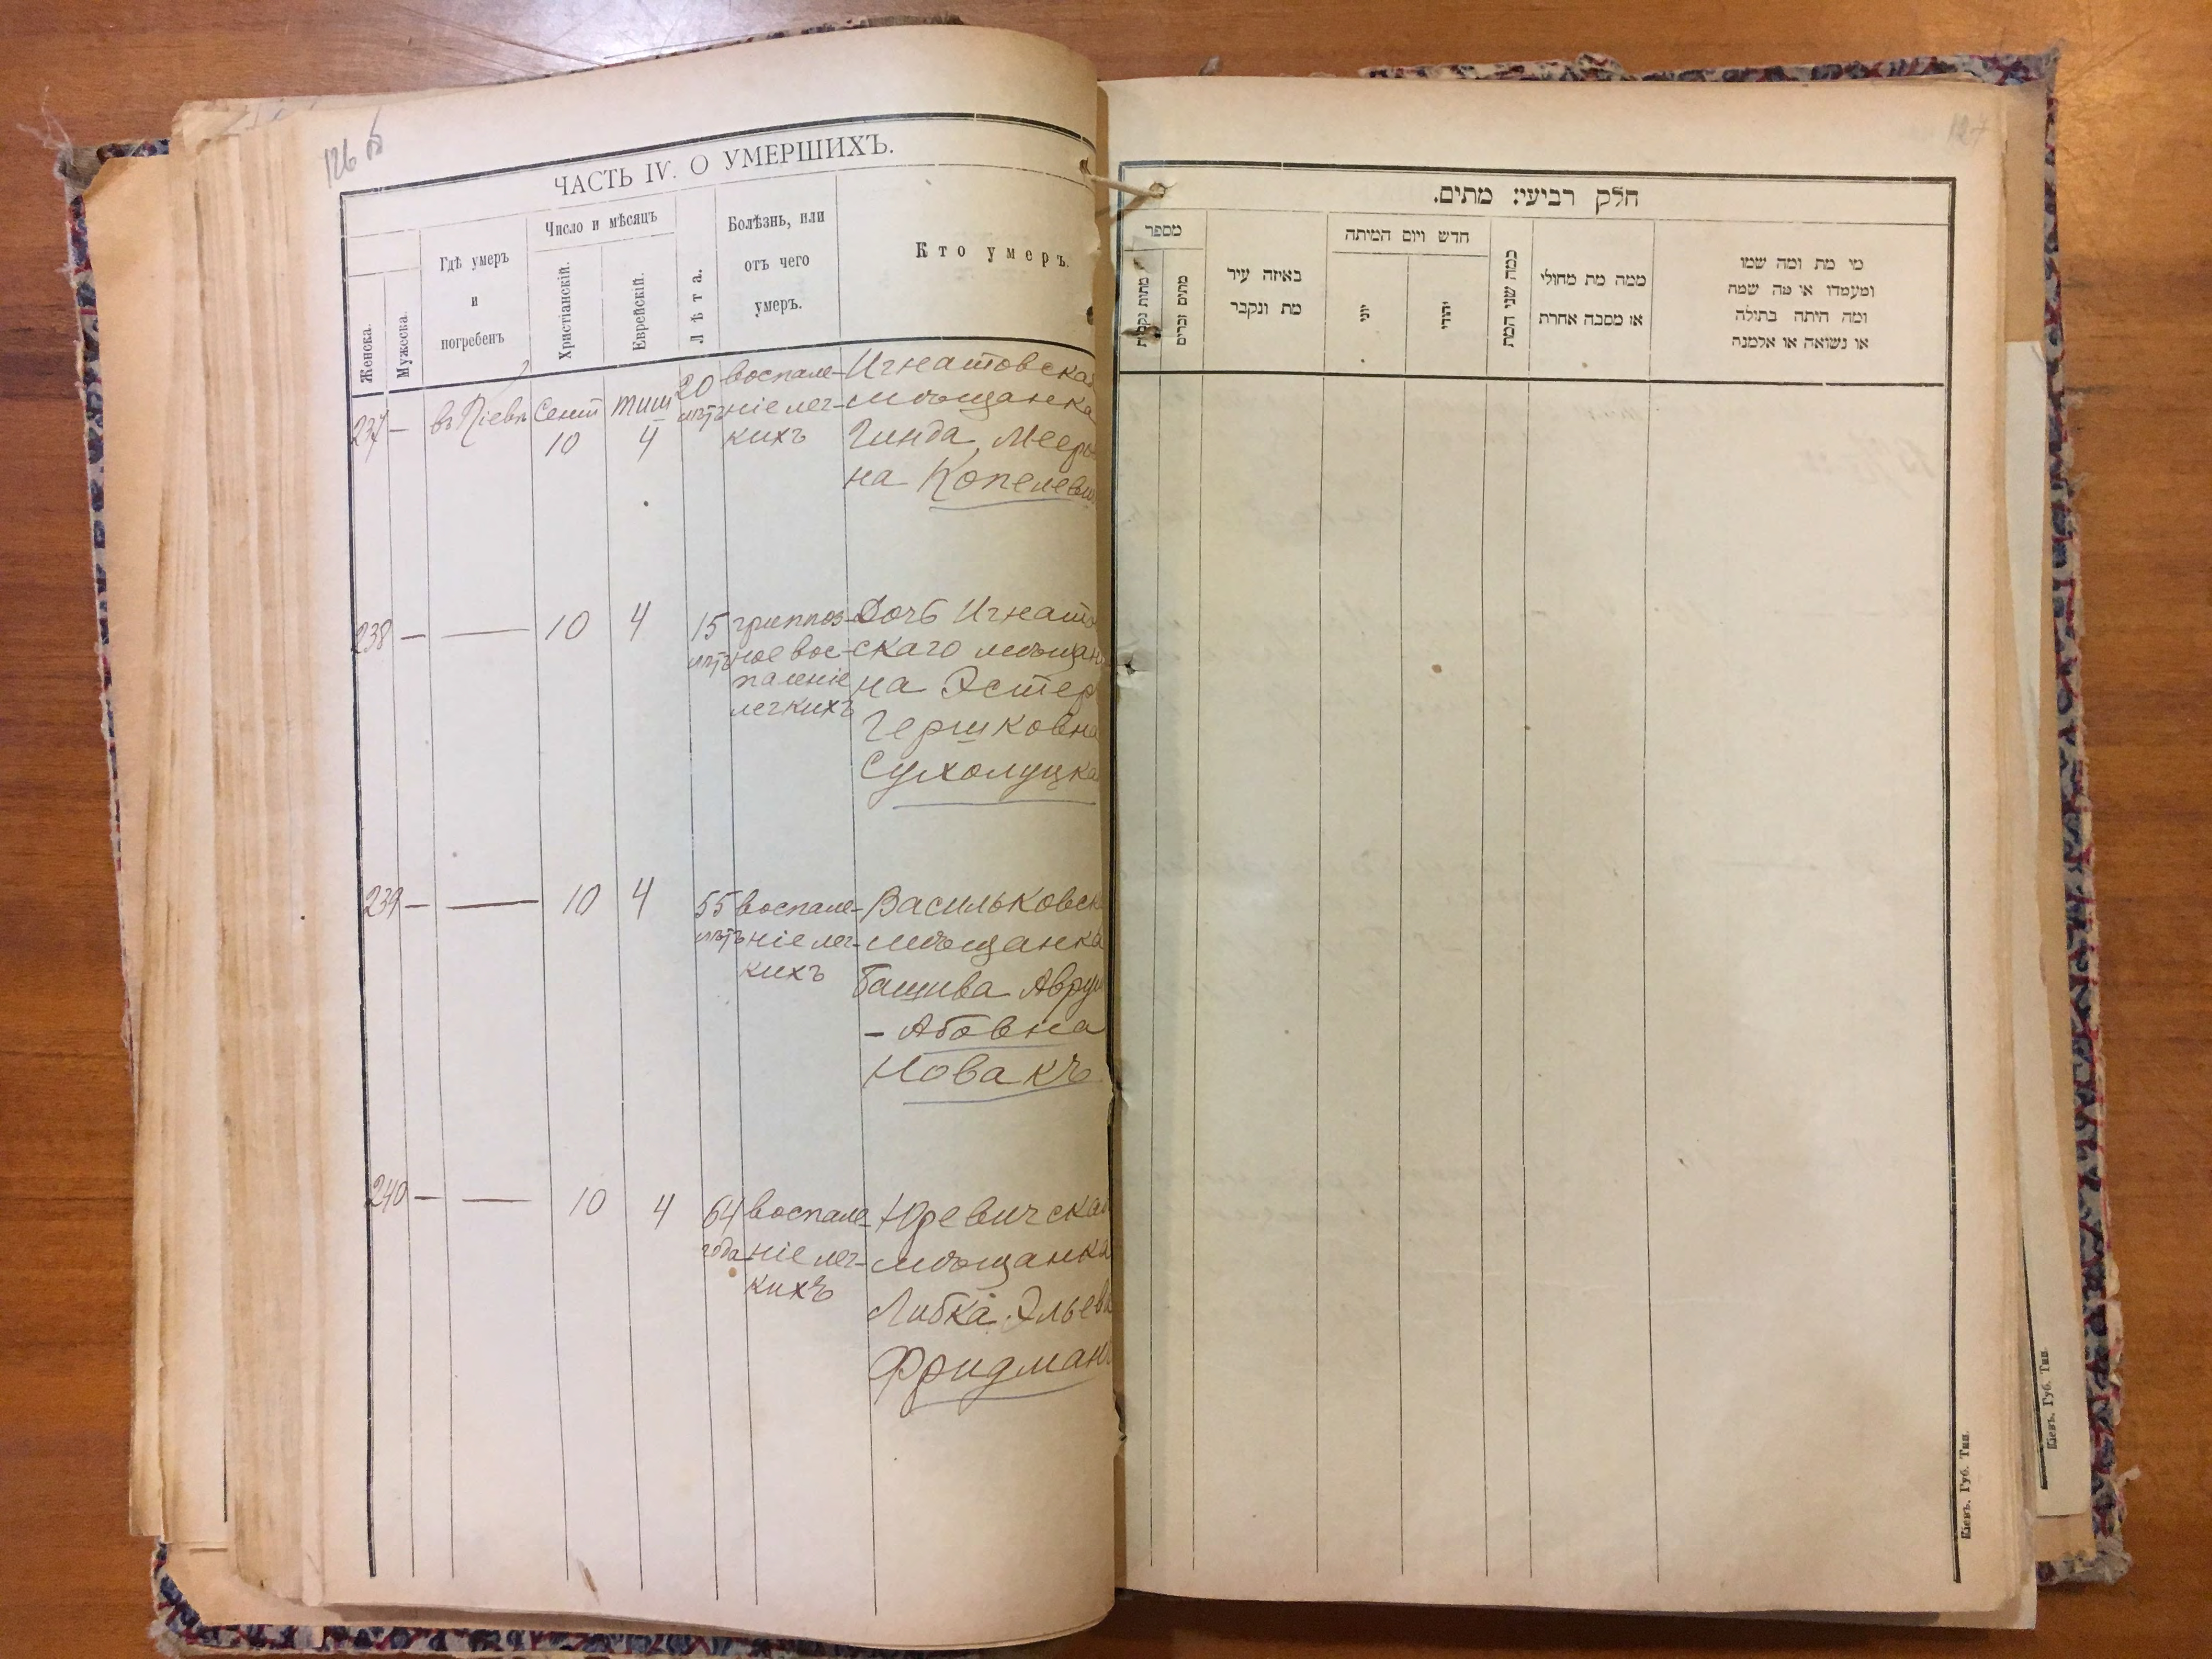 126 б
ЧАСТЬ IV. О УМЕРШИХЪ.
Женска.
Мужеска.
Гдѣ умеръ
и
погребенъ
Число и мѣсяцъ
Христіанскій.
Еврейскій.
Лѣта.
Болѣзнь, или
отъ чего
умеръ.
Кто умеръ.
237 — въ Кіевѣ Сент 10 тиш 4
20 лѣтъ
воспале-
ніе лег-
кихъ
Игнатовская
мѣщанка
Гинда Мееро
на Копелеви
238 — — 10 4
15 лѣтъ
гриппоз-
ное вос-
паленіе
легкихъ
Дочь Игнато
скаго мѣщан
на Эстер
Гершковна
Сухолуцка
239 — — 10 4
55 лѣтъ
воспале-
ніе лег-
кихъ
Васильковск
мѣщанка
Башива Аврум
- Абовна
Новакъ
240 — — 10 4
64 года
воспале-
ніе лег-
кихъ
Юревичская
мѣщанка
Либка Эльев
Фридманъ
127
חלק רביעי: מתים.
מספר
מתות נקבות
מתים זכרים
באיזה עיר
מת ונקבר
חדש ויום המיתה
יוני
יהודי
כמה שני המת
ממה מת מחולי
או מסבה אחרת
מי מת ומה שמו
ומעמדו או מה שמה
ומה היתה בתולה
או נשואה או אלמנה
Кіевъ. Губ. Тип.
Кіевъ. Губ. Тип.